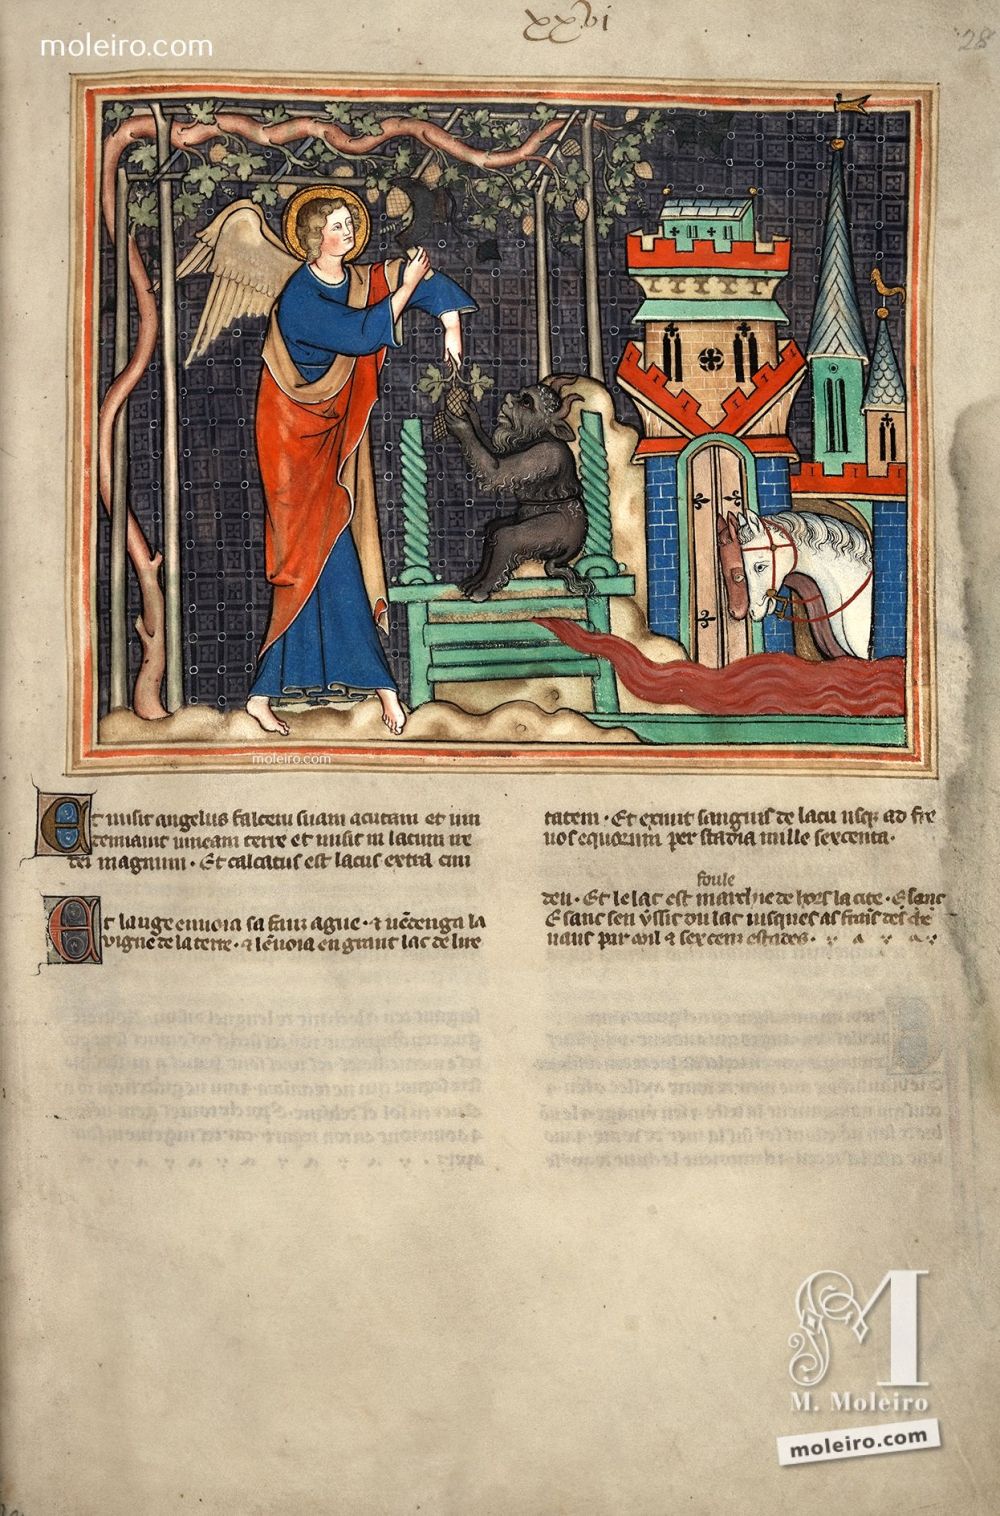 xxvi
28
moleiro.com
moleiro.com
Et misit angelus falcem suam acutam et uin
demiauit uineam terre et misit in lacum ire
dei magnum · Et calcatus est lacus extra ciui
tatem · Et exiuit sanguis de lacu usq; ad fre
nos equorum per stadia mille sexcenta ·
Et lange enuoia sa fauz ague · ⁊ uẽdenga la
vigne de la terre · ⁊ lẽuoia en grant lac de lire
foule
deu · Et le lac est marchie de hors la cite · E sanc
E sanc sen yssit du lac iusques as frains des che
uaus par mil ⁊ sex cenz estades ·
M
M. Moleiro
moleiro.com